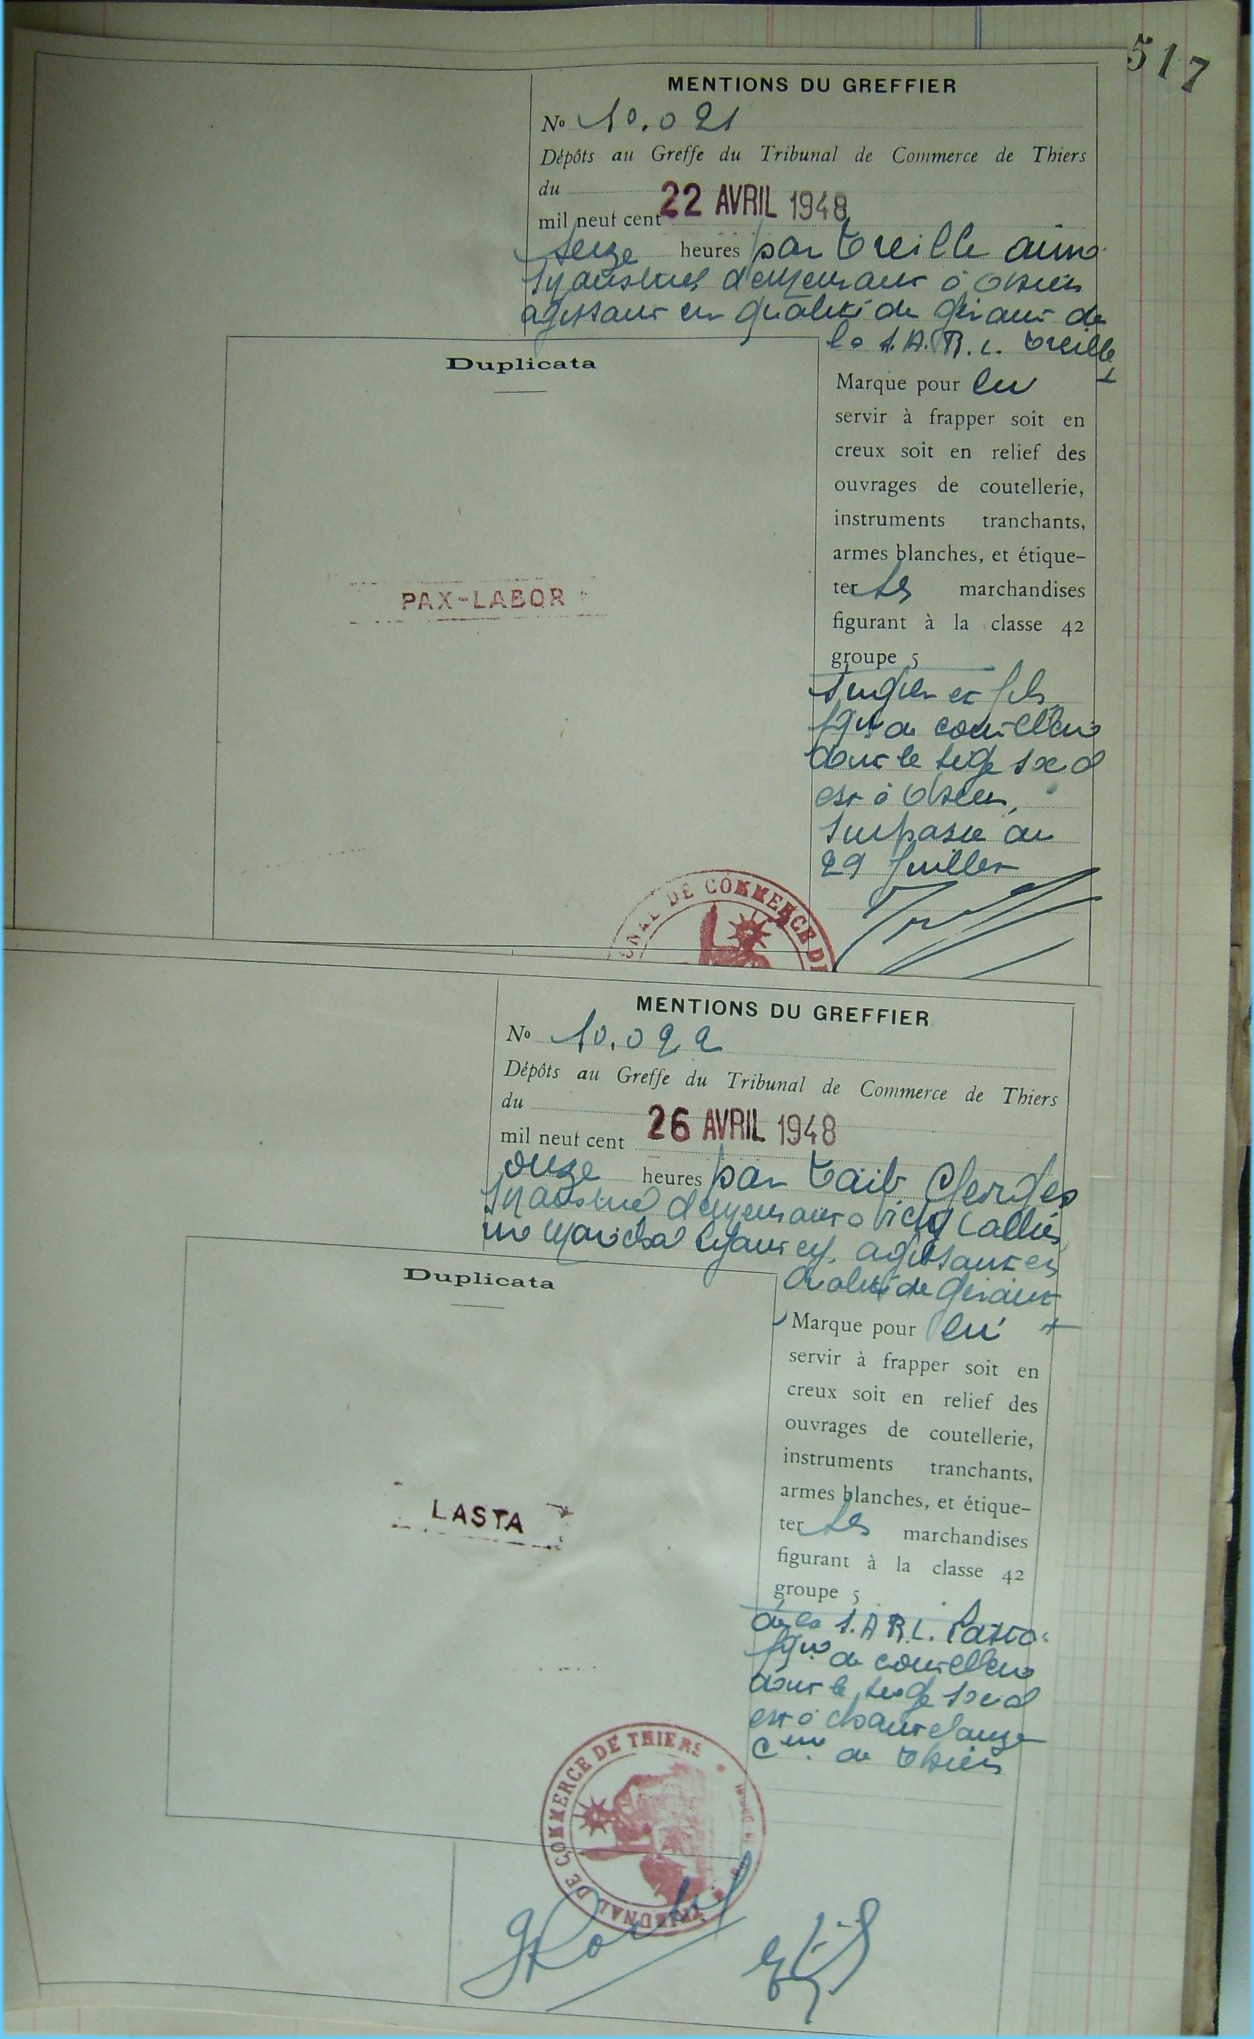 517
MENTIONS DU GREFFIER
No 10.021
Dépôts au Greffe du Tribunal de Commerce de Thiers
du
mil neuf cent 22 AVRIL 1948
seize heures par Treille aimé
Industriel demeurant à Thiers
agissant en qualité de gérant de
la S.A.R.L. Treille
+
Duplicata
PAX-LABOR
Marque pour lui
servir à frapper soit en
creux soit en relief des
ouvrages de coutellerie,
instruments tranchants,
armes blanches, et étique-
ter ses marchandises
figurant à la classe 42
groupe 5
et fils
fque de coutellerie
dont le siège social
est à Thiers,
Impasse du
29 Juillet
DE COMMERCE DE
MENTIONS DU GREFFIER
No 10.022
Dépôts au Greffe du Tribunal de Commerce de Thiers
du
mil neuf cent 26 AVRIL 1948
onze heures par Georges
Industriel demeurant à Vichy (allier)
agissant en
qualité de gérant
+
Duplicata
LASTA
Marque pour lui
servir à frapper soit en
creux soit en relief des
ouvrages de coutellerie,
instruments tranchants,
armes blanches, et étique-
ter ses marchandises
figurant à la classe 42
groupe 5
de la S.A.R.L. Lasta
fque de coutellerie
dont le siège social
est à
Cne de Thiers
TRIBUNAL DE COMMERCE DE THIERS